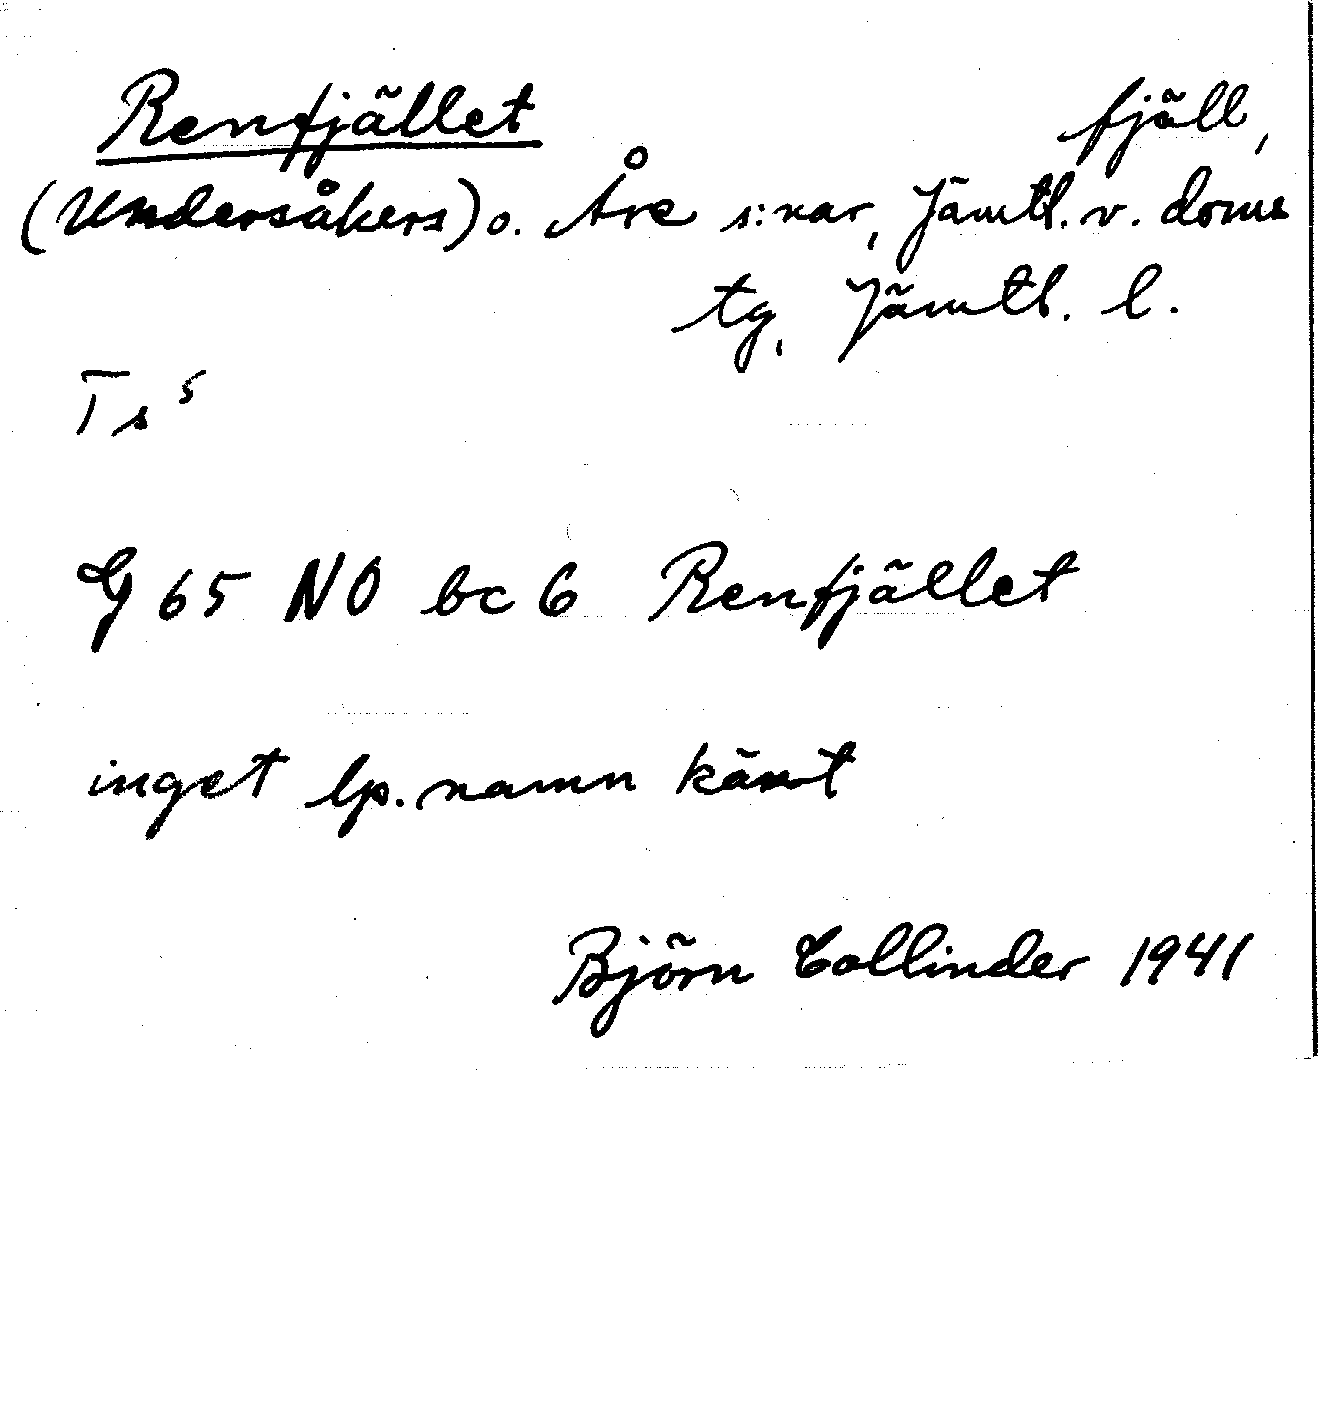 Renfjället fjäll,
(Undersåkers) o. Åre s:nar, Jämtl. v. doms
tg, Jämtl. l.
Ts 5
G 65 NO bc 6 Renfjället
inget lp. namn känt
Björn Collinder 1941